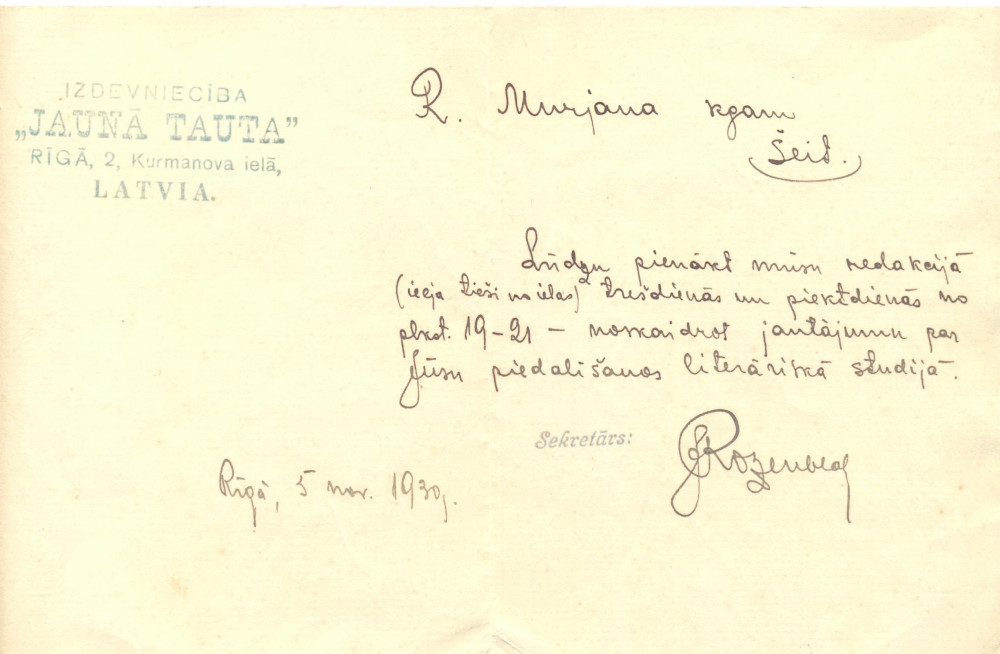 IZDEVNIECĪBA
„JAUNĀ TAUTA”
RĪGĀ, 2, Kurmanova ielā,
LATVIA.
R. Murjana kgam
Šeit.
Lūdzu pienākt mūsu redakcijā
(ieeja tieši no ielas) trešdienās un piektdienās no
plkst. 19–21 – noskaidrot jautājumu par
Jūsu piedališanos literāriskā studijā.
Sekretārs:
JRozenberg
Rīgā, 5 nov. 1930g.